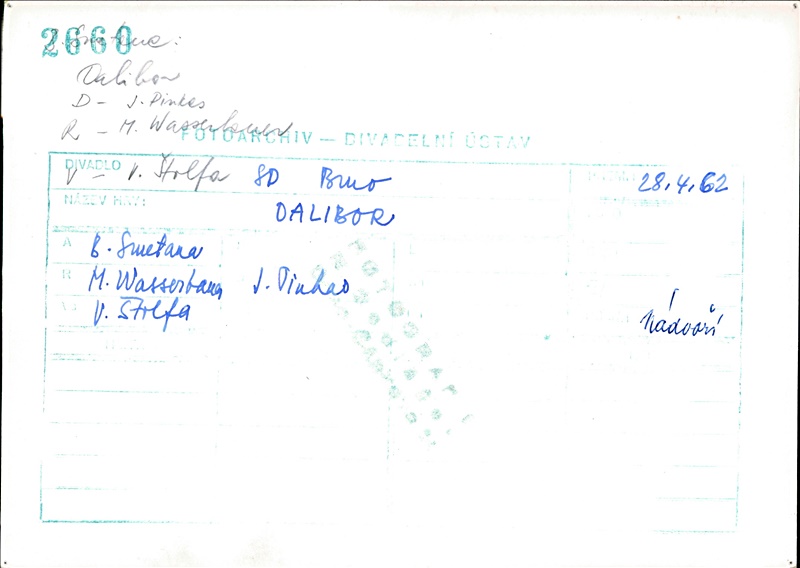 2660
B. Smetana:
Dalibor
D - J. Pinkas
R - M. Wasserbauer
FOTOARCHIV — DIVADELNÍ ÚSTAV
V - V. Štolfa
DIVADLO SD Brno 28.4.62
NÁZEV HRY: DALIBOR
A B. Smetana
R M. Wasserbauer J. Pinkas
V. Štolfa
Nádvoří